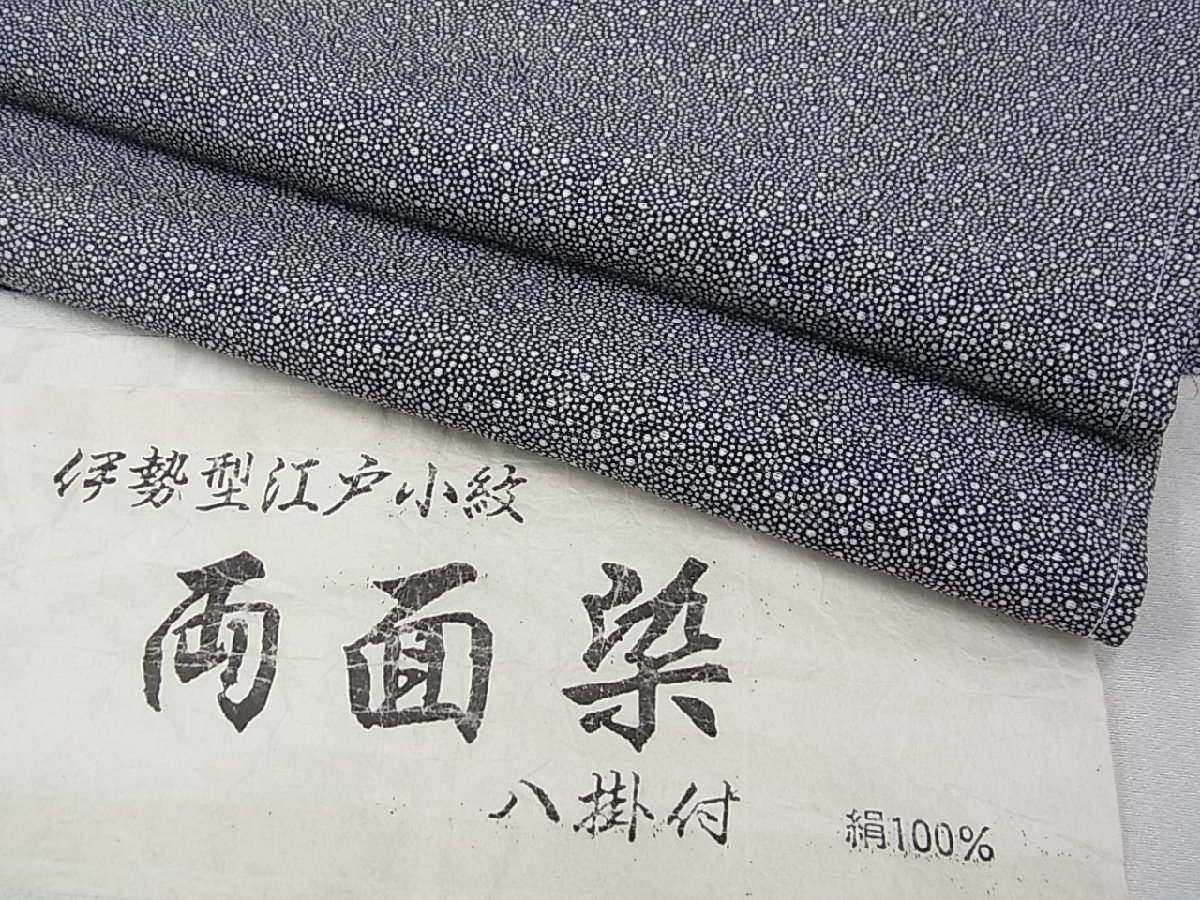 伊勢型江戸小紋
両面染
八掛付
絹100%